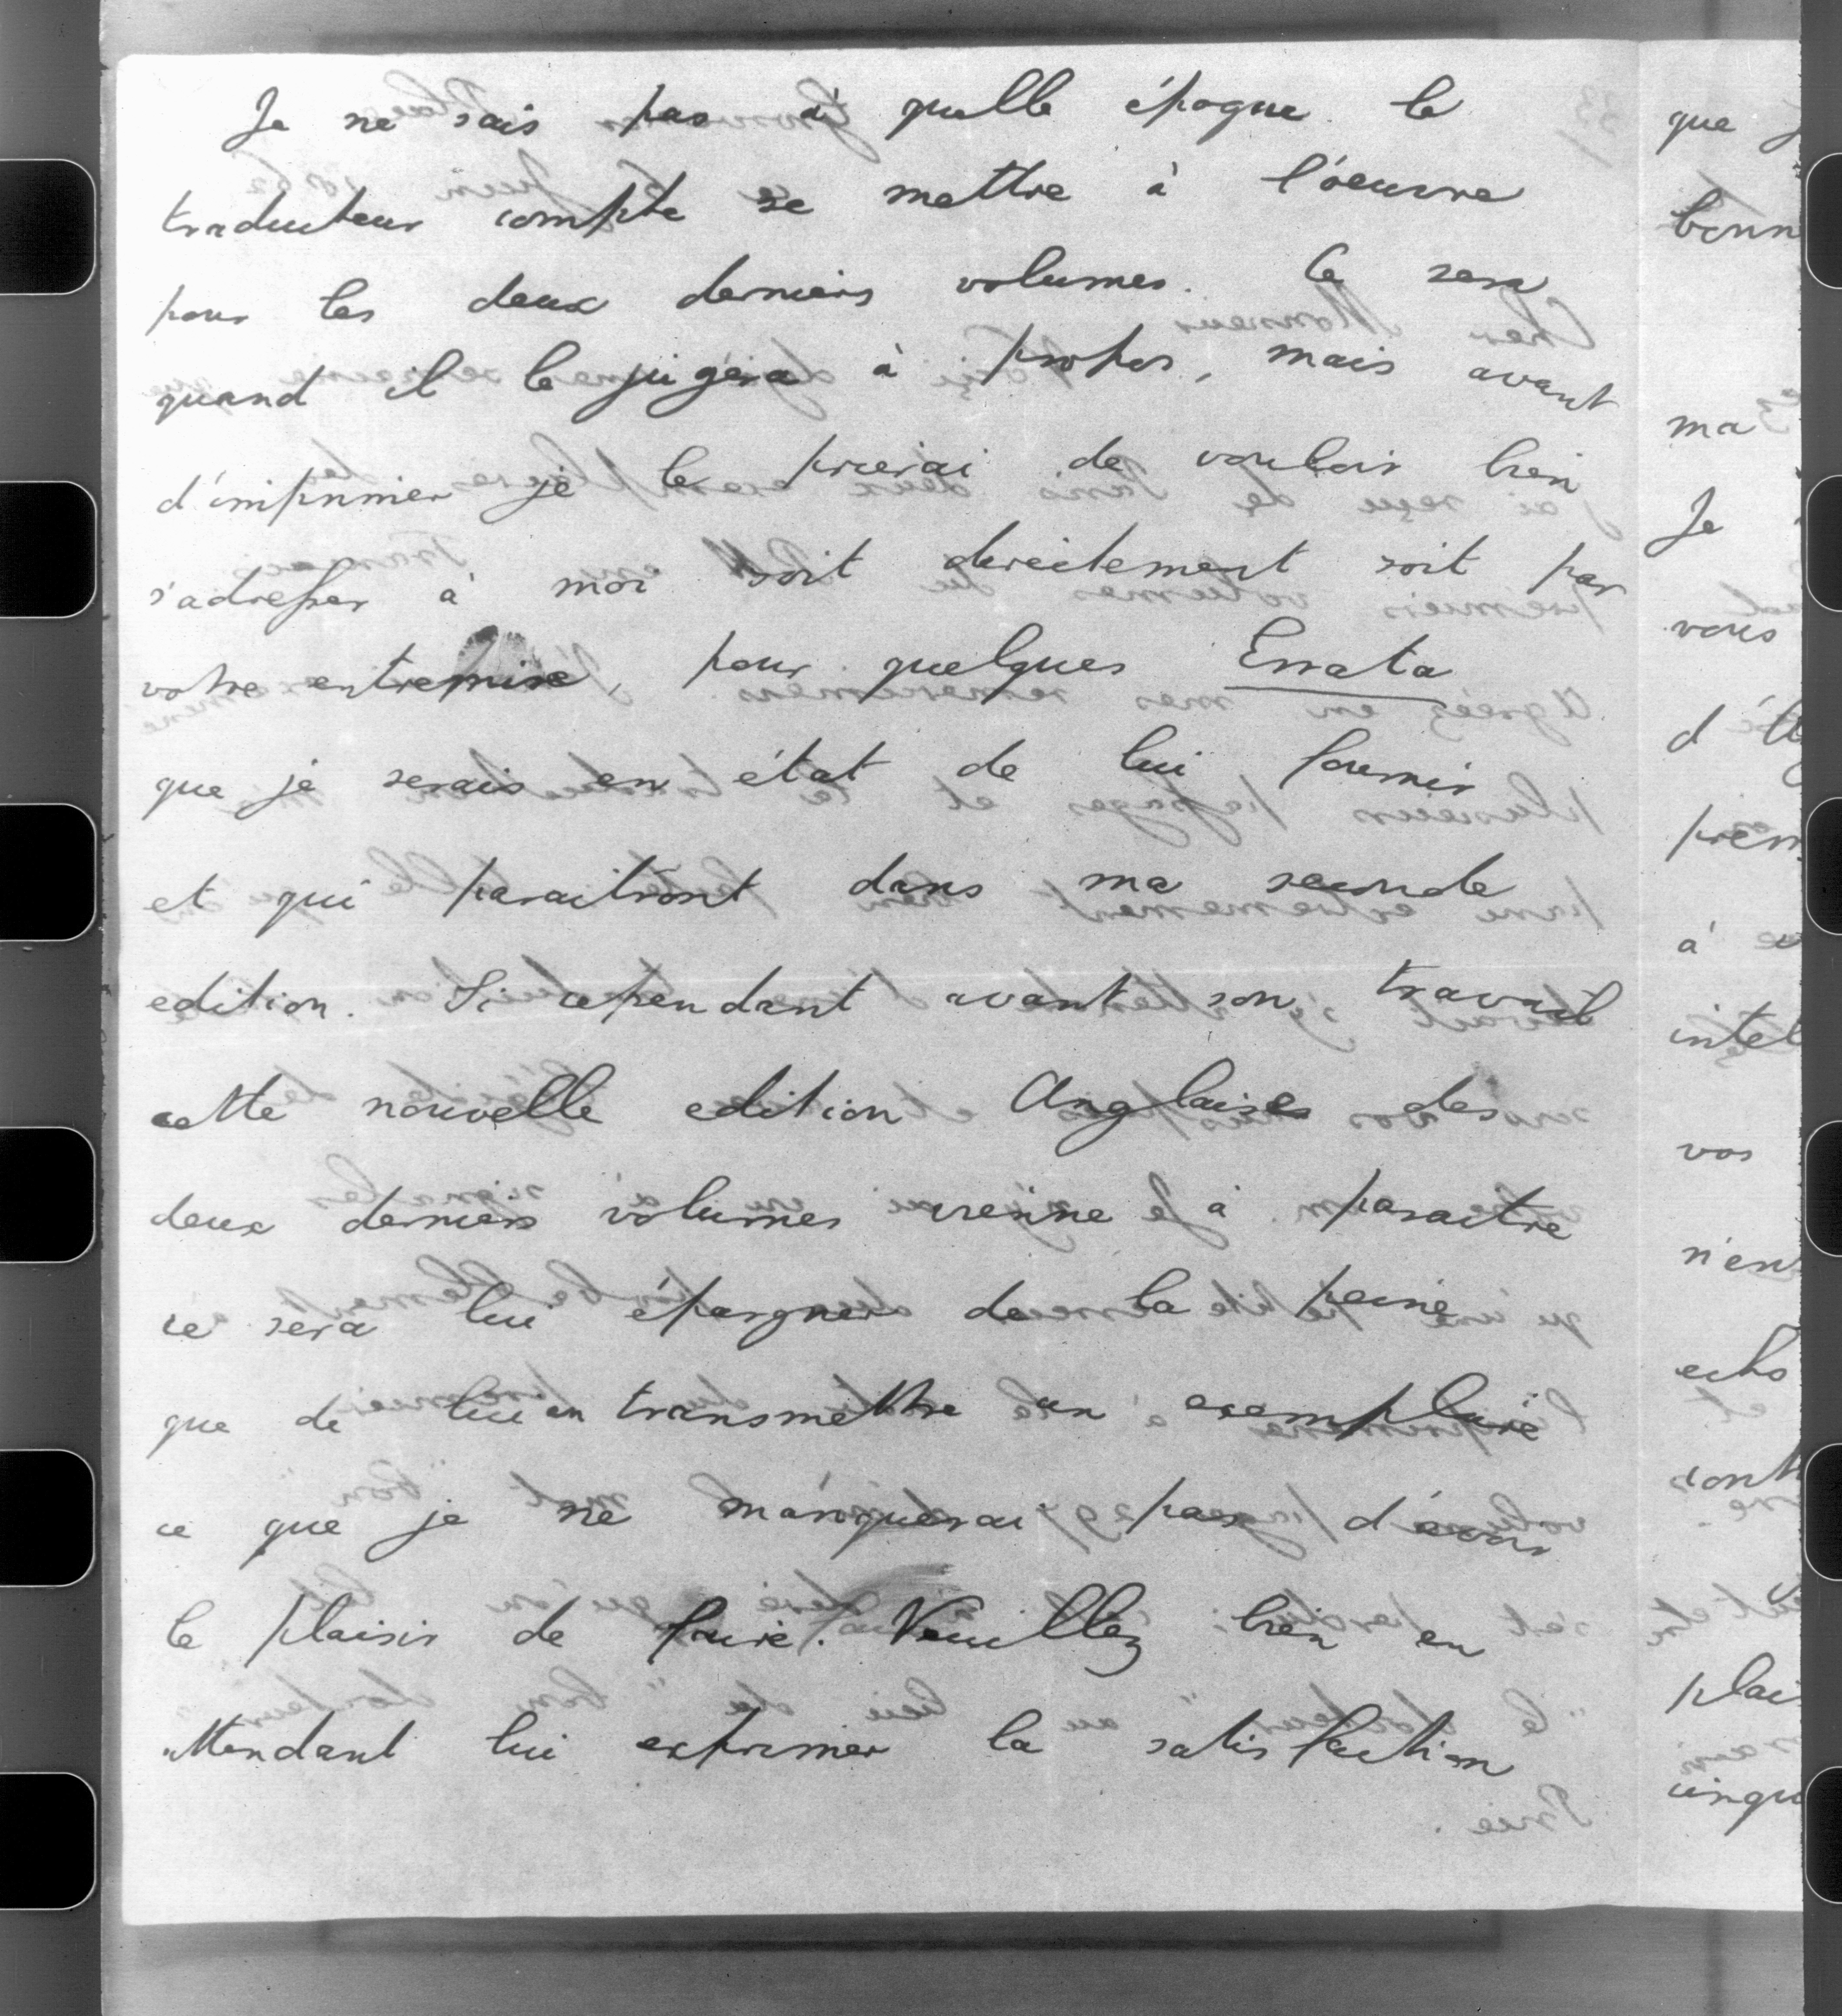 Je ne sais pas à quelle époque le
traducteur compte se mettre à l'oeuvre
pour les deux derniers volumes. Ce sera
quand il le jugera à propos, mais avant
d'imprimer je le prierai de vouloir bien
s'adresser à moi soit directement soit par
votre entremise, pour quelques Errata
que je serais en état de lui fournir
et qui paraitront dans ma seconde
edition. Si cependant avant son travail
cette nouvelle edition Anglaise des
deux derniers volumes vienne à paraitre
ce sera lui épargner de la peine
que de lui en transmettre un exemplaire
ce que je ne manquerai pas d'avoir
le plaisir de faire. Veuillez bien en
attendant lui exprimer la satisfaction
que
bonn
ma
Je
vous
d'A
prem
à
intel
vos
n'en
echo
cont
plai
cinqu